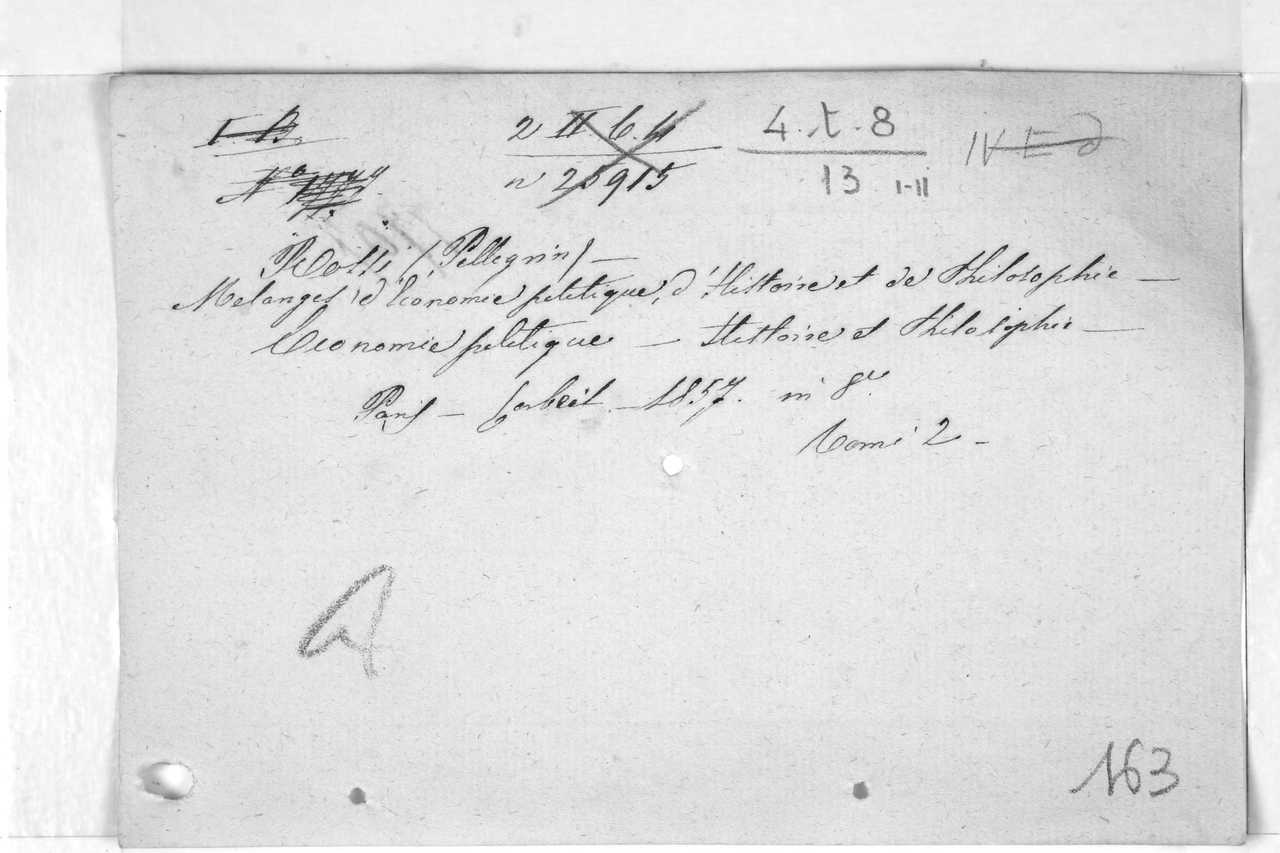 2 II. 6. 4
n 20915
4. t. 8
13 I-II
IV E d
Rossi (Pellegrin) —
Melanges d'Économie politique, d'Histoire et de Philosophie —
Economie politique — Histoire et Philosophie —
Paris — Corbeil — 1857. in 8º
Tomi 2 —
163